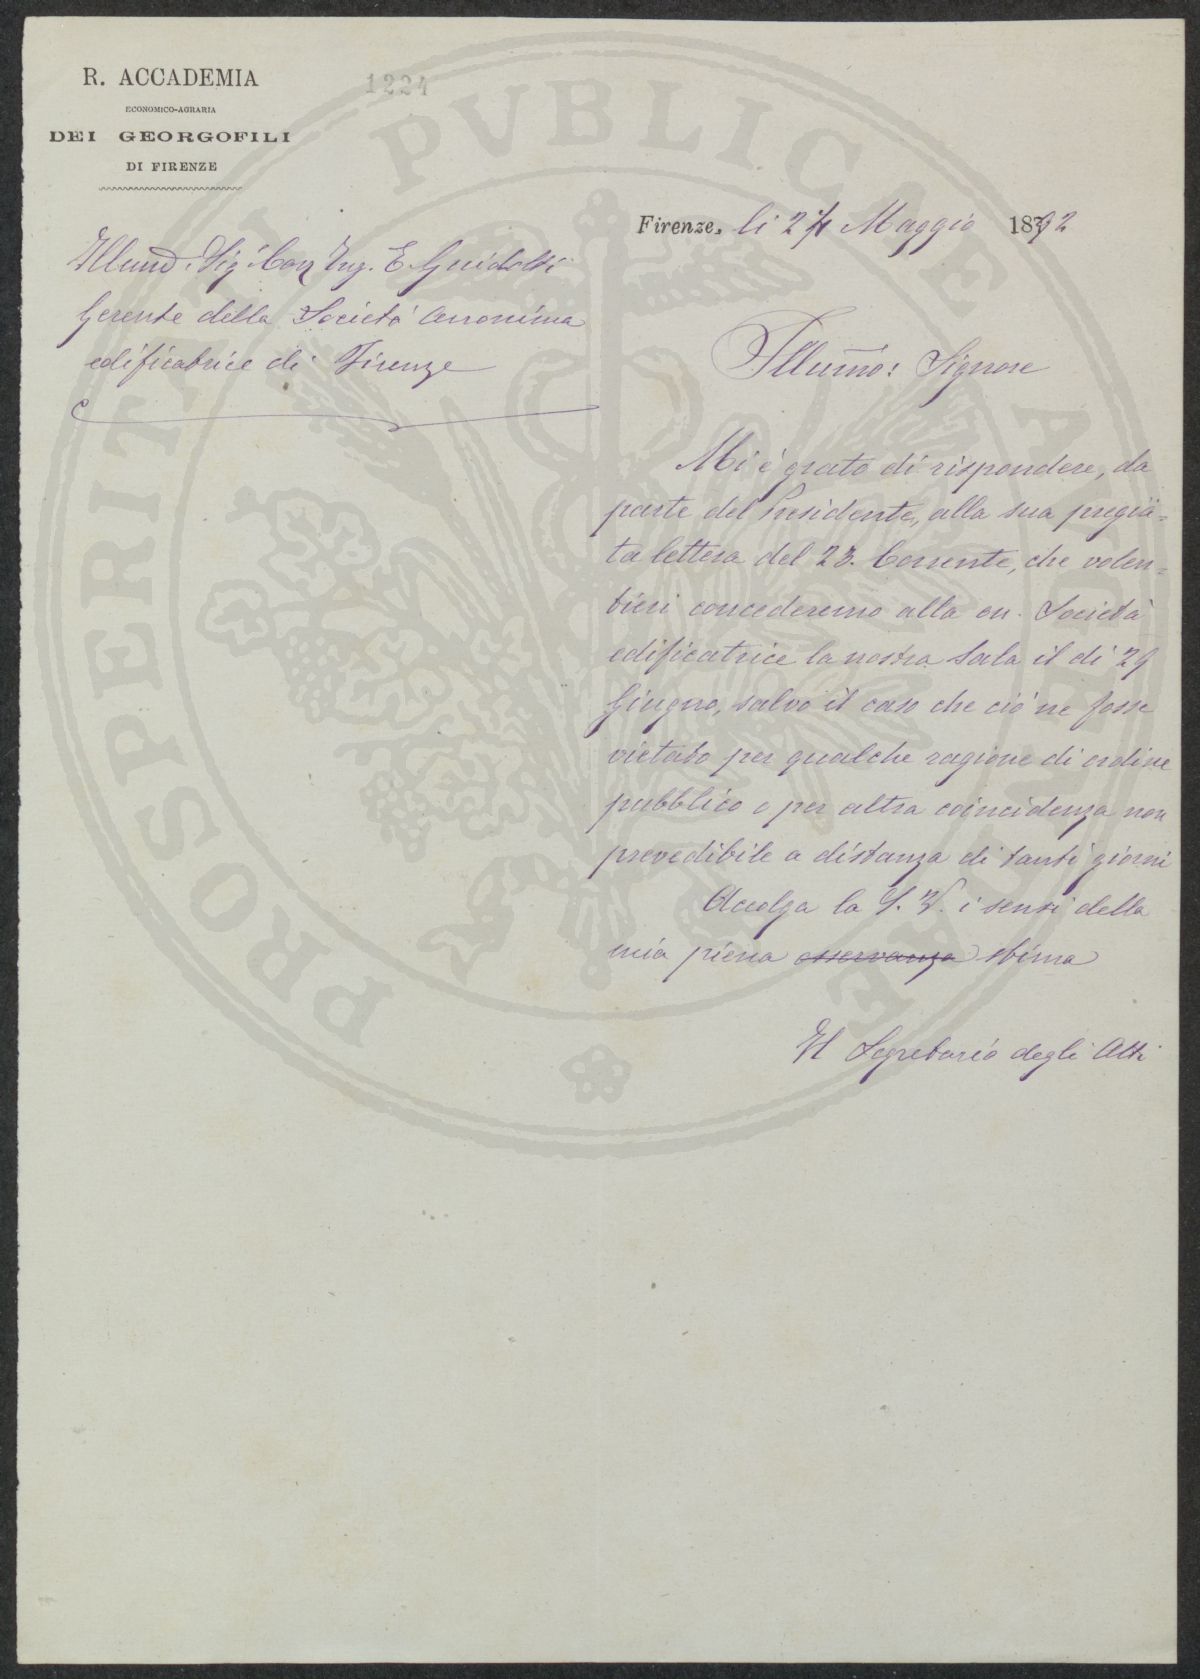 R. ACCADEMIA
ECONOMICO-AGRARIA
DEI GEORGOFILI
DI FIRENZE
1224
Firenze, li 24 Maggio 1892
Sig. Ing. E. Guidotti
Gerente della Società Anonima
edificatrice di Firenze
Illumo: Signore
Mi è grato di rispondere, da
parte del Presidente, alla sua pregia=
ta lettera del 23. Corrente, che volen=
tieri concederemo alla on. Società
edificatrice la nostra Sala il dì 29
Giugno, salvo il caso che ciò ne fosse
vietato per qualche ragione di ordine
pubblico o per altra coincidenza non
prevedibile a distanza di tanti giorni
Accolga la S. V. i sensi della
mia piena osservanza stima
Il Segretario degli Atti
PROSPERITATI PVBLICAE AVGENDAE